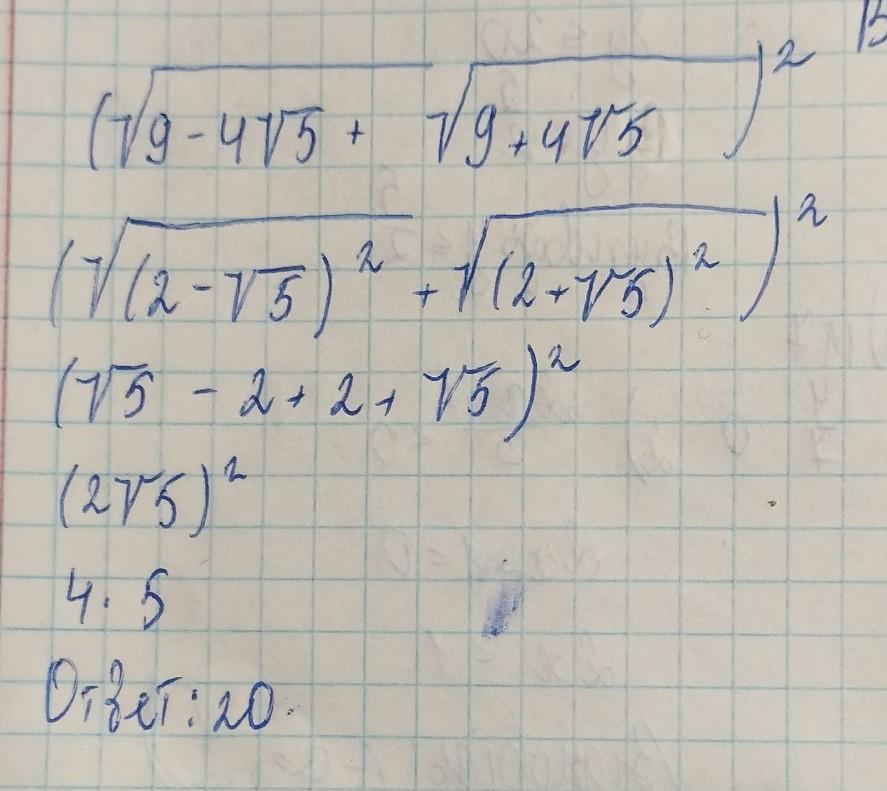 (√9 - 4√5 + √9 + 4√5)²
(√(2 - √5)² + √(2 + √5)²)²
(√5 - 2 + 2 + √5)²
(2√5)²
4 · 5
Ответ: 20.